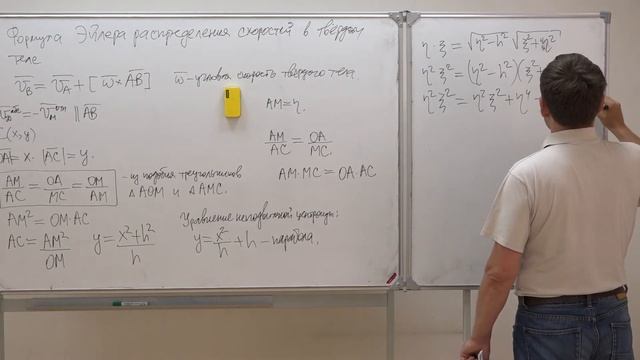 Формула Эйлера распределения скоростей в твёрдом
теле
V̅_B = V̅_A + [ω̅ × A̅B̅] ω̅ - угловая скорость твёрдого тела
= -V̅_M ∥ A̅B̅
C(x, y)
|OA| = x. |AC| = y.
AM/AC = OA/MC = OM/AM - из подобия треугольников
△AOM и △AMC.
AM² = OM·AC
AC = AM²/OM y = (x² + h²)/h
Уравнение неподвижной центроиды:
y = x²/h + h - парабола.
AM = η.
AM/AC = OA/MC.
AM·MC = OA·AC
η·ξ = √(η² - h²) √(ξ² + η²)
η²ξ² = (η² - h²)(ξ² +
η²ξ² = η²ξ² + η⁴